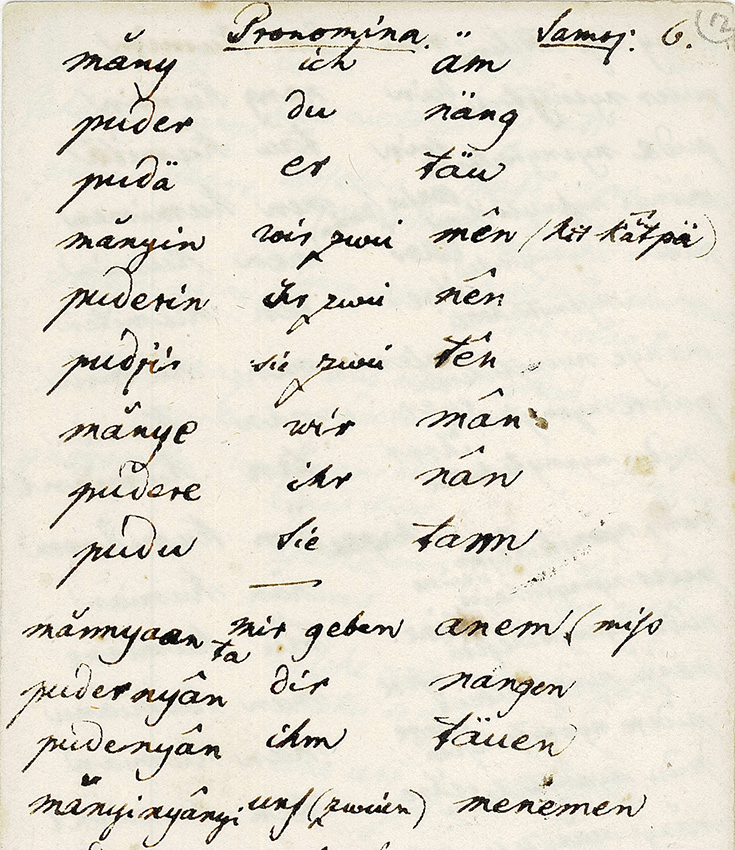 Pronomina. Samoj: 6.
măny ich äm
puder du näng
pudä er täu
mănyin wir zwei mên (kit kätpä)
puderin ihr zwei nên
pudjis sie zwei tên
mănye wir mân
pudere ihr nân
pudu sie tann
mănnyaan ta mir geben anem (miso
pudernyân dir nangen
pudenyân ihm täuen
mănyinyânyi unſ (zweien) menemen